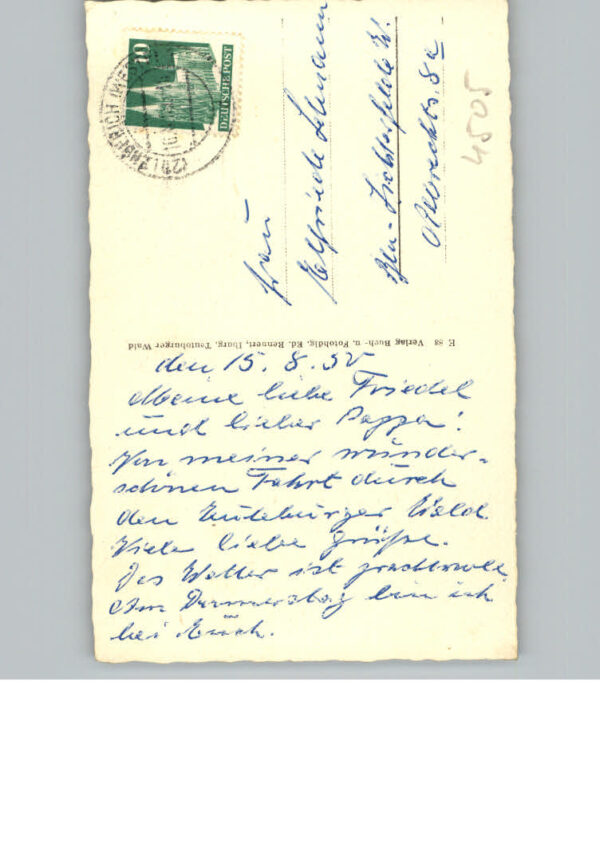 10
DEUTSCHE POST
Frau
Elfriede Lehmann
Bln-Lichterfelde W.
Albrechtstr. 8a
4505
E 88 Verlag Buch- u. Fotohdlg. Ed. Rennert, Iburg, Teutoburger Wald
den 15. 8. 50
Meine liebe Friedel
und lieber Pappa!
Von meiner wunder-
schönen Fahrt durch
den Teuteburger Wald
Viele liebe Grüße.
Das Wetter ist prachtvoll.
Am Donnerstag bin ich
bei Euch.